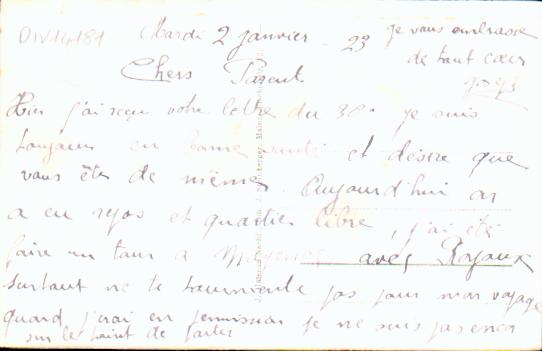 DIV14181
Mardi 2 janvier - 23
je vous embrasse
de tout cœur
Chers Parents
Hier j'ai reçu votre lettre du 30. je suis
toujours en bonne santé et désire que
vous êtes de même. Aujourd'hui on
a eu repos et quartier libre, j'ai été
faire un tour à Mayence avec Royaux
surtout ne te tourmente pas pour mon voyage
quand j'irai en permission je ne suis pas encor
sur le point de partir